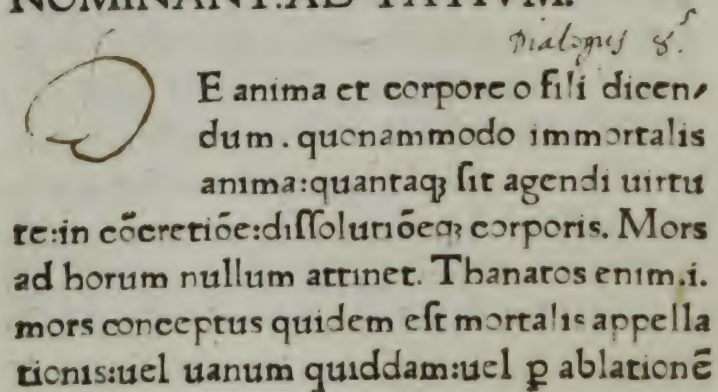 NOMINANT: AD TATIVM.
Dialogus 8.s
E anima et corpore o fili dicen⸗
dum. quonammodo immortalis
anima: quantaqꝫ ſit agendi uirtu
te: in cõcretiõe: diſſolutiõeqꝫ corporis. Mors
ad horum nullum attinet. Thanatos enim .i.
mors conceptus quidem eſt mortalis appella
tionis: uel uanum quiddam: uel ꝑ ablationẽ